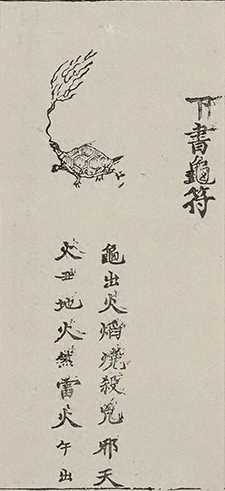 下書龜符
龜出火焰燒殺鬼邪天
火丑地火然雷火午出